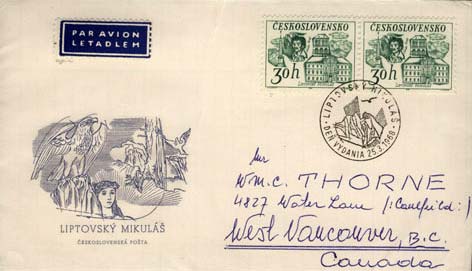 PAR AVION
LETADLEM
ČESKOSLOVENSKO
30h
ČESKOSLOVENSKO
30h
LIPTOVSKÝ MIKULÁŠ
DEŇ VYDANIA 25.3.1968
LIPTOVSKÝ MIKULÁŠ
ČESKOSLOVENSKÁ POŠTA
Mr
Wm. C. THORNE
4827 Water Lane /:Caulfield:/
West Vancouver, B.C.
Canada